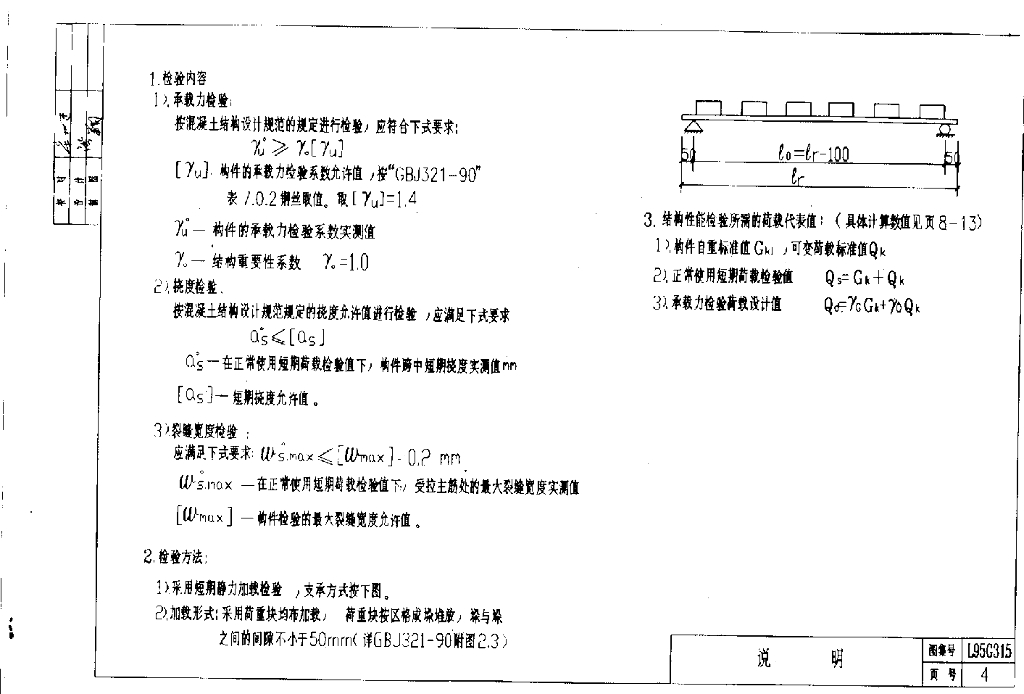 1.检验内容
1).承载力检验:
按混凝土结构设计规范的规定进行检验,应符合下式要求:
γu° ≥ γ₀[γu]
[γu]- 构件的承载力检验系数允许值,按"GBJ321-90"
表 7.0.2钢丝取值。取[γu]=1.4
γu° — 构件的承载力检验系数实测值
γ₀ — 结构重要性系数 γ₀=1.0
2).挠度检验.
按混凝土结构设计规范规定的挠度允许值进行检验,应满足下式要求
as° ≤ [as]
as° — 在正常使用短期荷载检验值下,构件跨中短期挠度实测值mm
[as] — 短期挠度允许值。
3)裂缝宽度检验:
应满足下式要求: ω°s.max ≤ [ωmax]- 0.2 mm
ω°s.max — 在正常使用短期荷载检验值下,受拉主筋处的最大裂缝宽度实测值
[ωmax] — 构件检验的最大裂缝宽度允许值。
2.检验方法:
1)采用短期静力加载检验,支承方式按下图。
2).加载形式:采用荷重块均布加载, 荷重块按区格成垛堆放,垛与垛
之间的间隙不小于50mm(详GBJ321-90附图2.3)
50 ℓ₀=ℓr-100 50
ℓr
3.结构性能检验所需的荷载代表值:(具体计算数值见页8-13)
1).构件自重标准值Gk,可变荷载标准值Qk
2).正常使用短期荷载检验值 Qs=Gk+Qk
3).承载力检验荷载设计值 Qd=γGGk+γQQk
说 明
图集号 L95G315
页 号 4